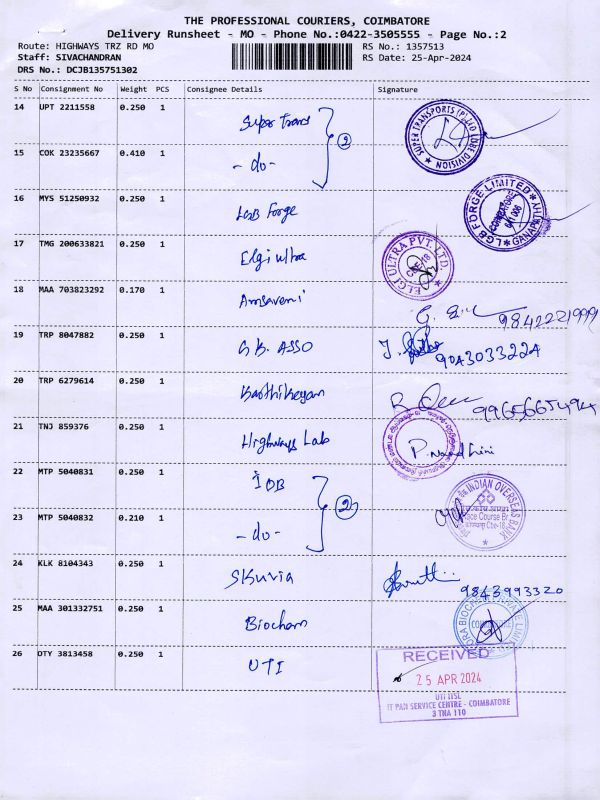 THE PROFESSIONAL COURIERS, COIMBATORE
Delivery Runsheet - MO - Phone No.:0422-3505555 - Page No.:2
Route: HIGHWAYS TRZ RD MO RS No.: 1357513
Staff: SIVACHANDRAN RS Date: 25-Apr-2024
DRS No.: DCJB135751302
S No Consignment No Weight PCS Consignee Details Signature
14 UPT 2211558 0.250 1 Super Trans 2
SUPER TRANSPORTS (P) LTD CBE DIVISION
15 COK 23235667 0.410 1 -do-
16 MYS 51250932 0.250 1 LGB Forge
LGB FORGE LIMITED COIMBATORE 641 006 GANAPATHY
17 TMG 200633821 0.250 1 Elgi ultra
ELGI ULTRA PVT. LTD CBE-18
18 MAA 703823292 0.170 1 Amsaveni
9842221999
19 TRP 8047882 0.250 1 G.K. ASSO
9043033224
20 TRP 6279614 0.250 1 Karthikeyan
21 TNJ 859376 0.250 1 Highways Lab P. Nandhini
22 MTP 5040831 0.250 1 IOB 2
INDIAN OVERSEAS BANK
Race Course Br
Cbe-18
23 MTP 5040832 0.210 1 -do-
24 KLK 8104343 0.250 1
9843993320
25 MAA 301332751 0.250 1 Biochem
COIMBATORE
26 OTY 3813458 0.250 1 UTI
RECEIVED
25 APR 2024
UTI ITSL
IT PAN SERVICE CENTRE - COIMBATORE
3 TNA 110